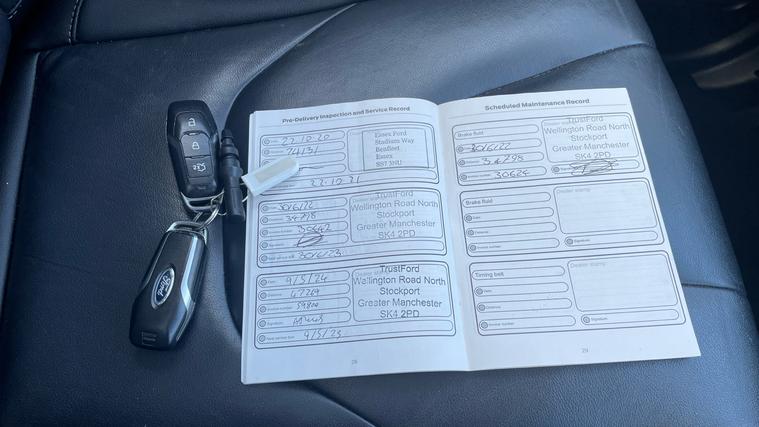 Pre-Delivery Inspection and Service Record
22.10.20
Essex Ford
Stadium Way
Benfleet
Essex
SS7 3NU
22.10.21
Date 30/6/22
34798
30642
30/6/23
TrustFord
Wellington Road North
Stockport
Greater Manchester
SK4 2PD
Date 9/5/24
Invoice number
Signature
TrustFord
Wellington Road North
Stockport
Greater Manchester
SK4 2PD
28
Ford
Scheduled Maintenance Record
Brake fluid
30/6/22
34798
30624
TrustFord
Wellington Road North
Stockport
Greater Manchester
SK4 2PD
Brake fluid
Dealer stamp
Date
Distance
Invoice number
Signature
Timing belt
Dealer stamp
Date
Distance
Invoice number
Signature
29